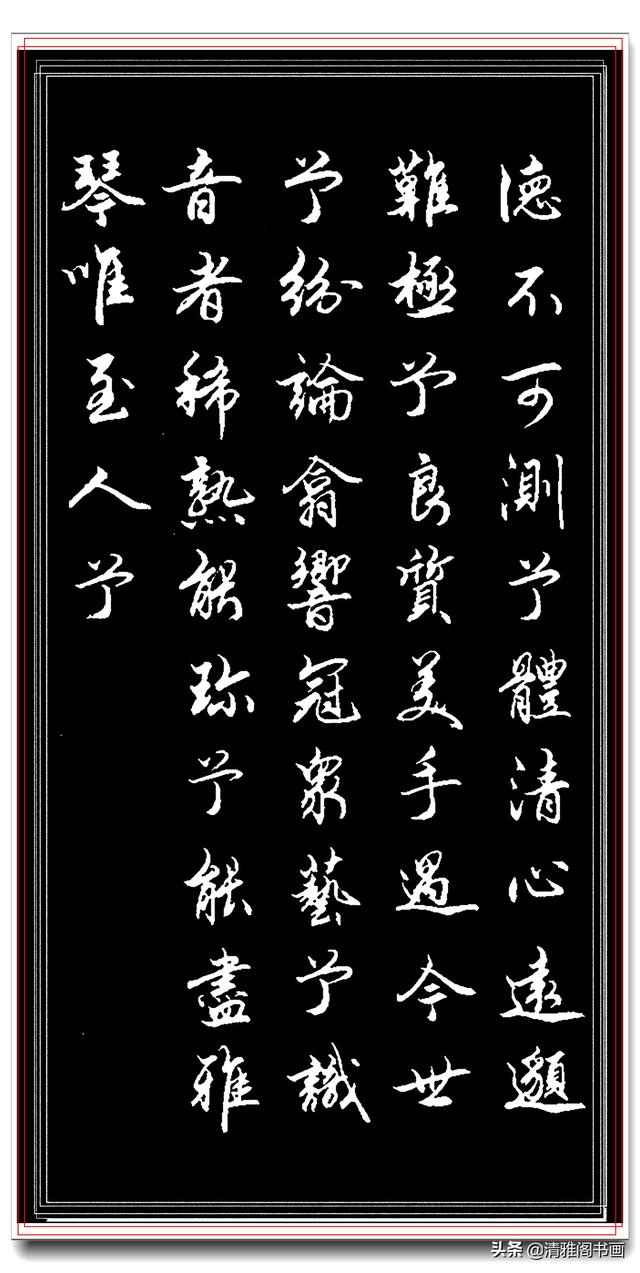 德不可測兮體清心遠邈
難極兮良質美手遇今世
兮紛論翕響冠衆藝兮識
音者稀熟能珍兮能盡雅
琴唯至人兮
头条 @清雅阁书画